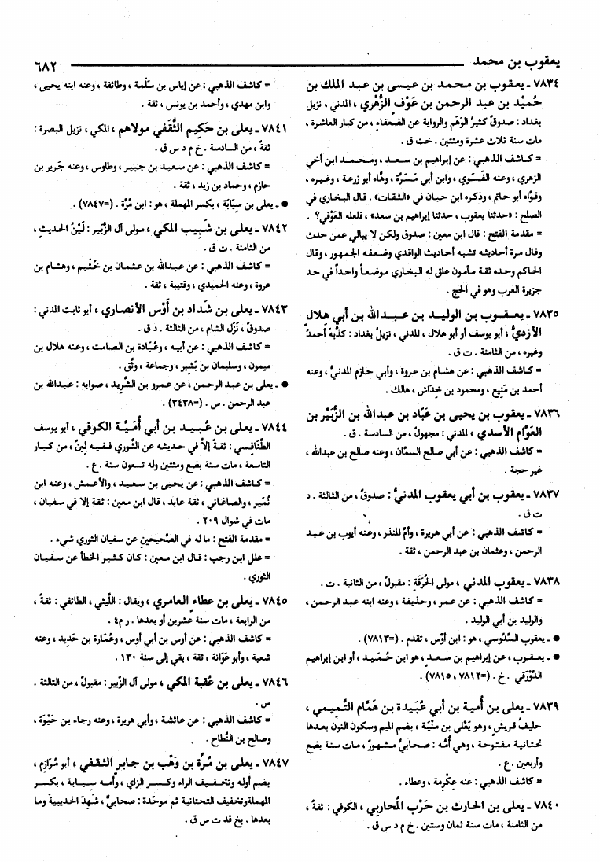 يعقوب بن محمد
٦٨٢
٧٨٣٤ ـ يعقوب بن محمد بن عيسى بن عبد الملك بن
حُمَيْد بن عبد الرحمن بن عَوْف الزُّهْري ، المدني ، نزيل
بغداد : صدوقٌ كثيرُ الوَهَم والرواية عن الضعفاء ، من كبار العاشرة ،
مات سنة ثلاث عشرة ومئتين . خت ق .
= كاشف الذهبي : عن إبراهيم بن سعد ، ومحمد ابن أخي
الزهري ، وعنه الفَسَوي ، وابن أبي مَسَرَّة ، وهّاه أبو زرعة ، وغيره ،
وقوّاه أبو حاتم ، وذكره ابن حبان في «الثقات» . قال البخاري في
الصلح : «حدثنا يعقوب ، حدثنا إبراهيم بن سعد» ، فلعله العَوْفي؟ .
= مقدمة الفتح : قال ابن معين : صدوق ولكن لا يبالي عمن حدث
وقال مرة أحاديثه تشبه أحاديث الواقدي وضعفه الجمهور ، وقال
الحاكم وحده ثقة مأمون علق له البخاري موضعاً واحداً في حد
جزيرة العرب وهو في الحج .
٧٨٣٥ ـ يعقوب بن الوليد بن عبدالله بن أبي هلال
الأَزْديُّ ، أبو يوسف أو أبو هلال ، المدني ، نزيلُ بغداد : كذَّبَهُ أحمدُ
وغيره ، من الثامنة . ت ق .
= كاشف الذهبي : عن هشام بن عروة ، وأبي حازم المدنيِّ ، وعنه
أحمد بن مَنِيع ، ومحمود بن خِداش ، هالك .
٧٨٣٦ ـ يعقوب بن يحيى بن عَبّاد بن عبدالله بن الزُّبَيْر بن
العَوّام الأسدي ، المدني : مجهولٌ ، من السادسة . ق .
= كاشف الذهبي : عن أبي صالح السمّان ، وعنه صالح بن عبدالله ،
غير حجة .
٧٨٣٧ ـ يعقوب بن أبي يعقوب المدنيُّ : صدوقٌ ، من الثالثة . د
ت ق .
= كاشف الذهبي : عن أبي هريرة ، وأمّ المنذر ، وعنه أيوب بن عبد
الرحمن ، وعثمان بن عبد الرحمن ، ثقة .
٧٨٣٨ ـ يعقوب المدني ، مولى الحُرَقَة : مقبولٌ ، من الثانية . ت .
= كاشف الذهبي : عن عمر ، وحذيفة ، وعنه ابنه عبد الرحمن ،
والوليد بن أبي الوليد .
● ـ يعقوب السَّدُوسي ، هو : ابن أوْس ، تقدم . (=٧٨١٣) .
● ـ يعقوب ، عن إبراهيم بن سعد ، هو ابن حُمَيْد ، أو ابن إبراهيم
الدَّوْرَقي . خ . (=٧٨١٢ ، ٧٨١٥) .
٧٨٣٩ ـ يعلى بن أُمية بن أبي عُبَيْدة بن هَمّام التَّميمي ،
حليفُ قريش ، وهو يَعْلى بن مُنْيَة ، بضم الميم وسكون النون بعدها
تحتانية مفتوحة ، وهي أُمُّه : صحابيٌّ مشهورٌ ، مات سنة بضع
وأربعين . ع .
= كاشف الذهبي : عنه عِكْرِمة ، وعطاء .
٧٨٤٠ ـ يعلى بن الحارث بن حَرْب المُحاربي ، الكوفي : ثقةٌ ،
من الثامنة ، مات سنة ثمان وستين . خ م د س ق .
= كاشف الذهبي : عن إياس بن سَلَمة ، وطائفة ، وعنه ابنه يحيى ،
وابن مهدي ، وأحمد بن يونس ، ثقة .
٧٨٤١ ـ يعلى بن حَكِيم الثَّقَفي مولاهم ، المكي ، نزيل البصرة :
ثقةٌ ، من السادسة . خ م د س ق .
= كاشف الذهبي : عن سعيد بن جبير ، وطاوس ، وعنه جرير بن
حازم ، وحماد بن زيد ، ثقة .
● ـ يعلى بن سِيَابَة ، بكسر المهملة ، هو : ابن مُرَّة . (=٧٨٤٧) .
٧٨٤٢ ـ يعلى بن شَبِيب المكي ، مولى آل الزُّبير : لَيِّنُ الحديثِ ،
من الثامنة . ت ق .
= كاشف الذهبي : عن عبدالله بن عثمان بن خُثَيْم ، وهشام بن
عروة ، وعنه الحميدي ، وقتيبة ، ثقة .
٧٨٤٣ ـ يعلى بن شَدّاد بن أَوْس الأنصاري ، أبو ثابت المدني :
صدوقٌ ، نَزَلَ الشام ، من الثالثة . د ق .
= كاشف الذهبي : عن أبيه ، وعُبَادة بن الصامت ، وعنه هلال بن
ميمون ، وسليمان بن بُشَير ، وجماعة ، وثِّق .
● ـ يعلى بن عبد الرحمن ، عن عمرو بن الشَّرِيد ، صوابه : عبدالله بن
عبد الرحمن . س . (=٣٤٣٨) .
٧٨٤٤ ـ يعلى بن عُبيد بن أبي أُمَيَّة الكوفي ، أبو يوسف
الطَّنافِسي : ثقةٌ إلا في حديثه عن الثوري ففيه لِينٌ ، من كبار
التاسعة ، مات سنة بضع ومئتين وله تسعون سنة . ع .
= كاشف الذهبي : عن يحيى بن سعيد ، والأعمش ، وعنه ابن
نُمَير ، والصاغاني ، ثقة عابد ، قال ابن معين : ثقة إلا في سفيان ،
مات في شوال ٢٠٩ .
= مقدمة الفتح : ما له في الصحيحين عن سفيان الثوري شيء .
= علل ابن رجب : قال ابن معين : كان كثير الخطأ عن سفيان
الثوري .
٧٨٤٥ ـ يعلى بن عطاء العامري ، ويقال : اللَّيْثي ، الطائفي : ثقةٌ ،
من الرابعة ، مات سنة عشرين أو بعدها . ر م ٤ .
= كاشف الذهبي : عن أوس بن أبي أوس ، وعُمَارة بن حَدِيد ، وعنه
شعبة ، وأبو عَوَانة ، ثقة ، بقي إلى سنة ١٢٠ .
٧٨٤٦ ـ يعلى بن عُقْبة المكي ، مولى آل الزبير : مقبولٌ ، من الثالثة .
س .
= كاشف الذهبي : عن عائشة ، وأبي هريرة ، وعنه رجاء بن حَيْوَة ،
وصالح بن النَّطَّاح .
٧٨٤٧ ـ يعلى بن مُرَّة بن وَهْب بن جابر الثقفي ، أبو مُرَازم ،
بضم أوله وتخفيف الراء وكسر الزاي ، وأمه سيابة ، بكسر
المهملة وتخفيف التحتانية ثم موحّدة : صحابيٌّ ، شَهِدَ الحديبية وما
بعدها . بخ قد ت س ق .